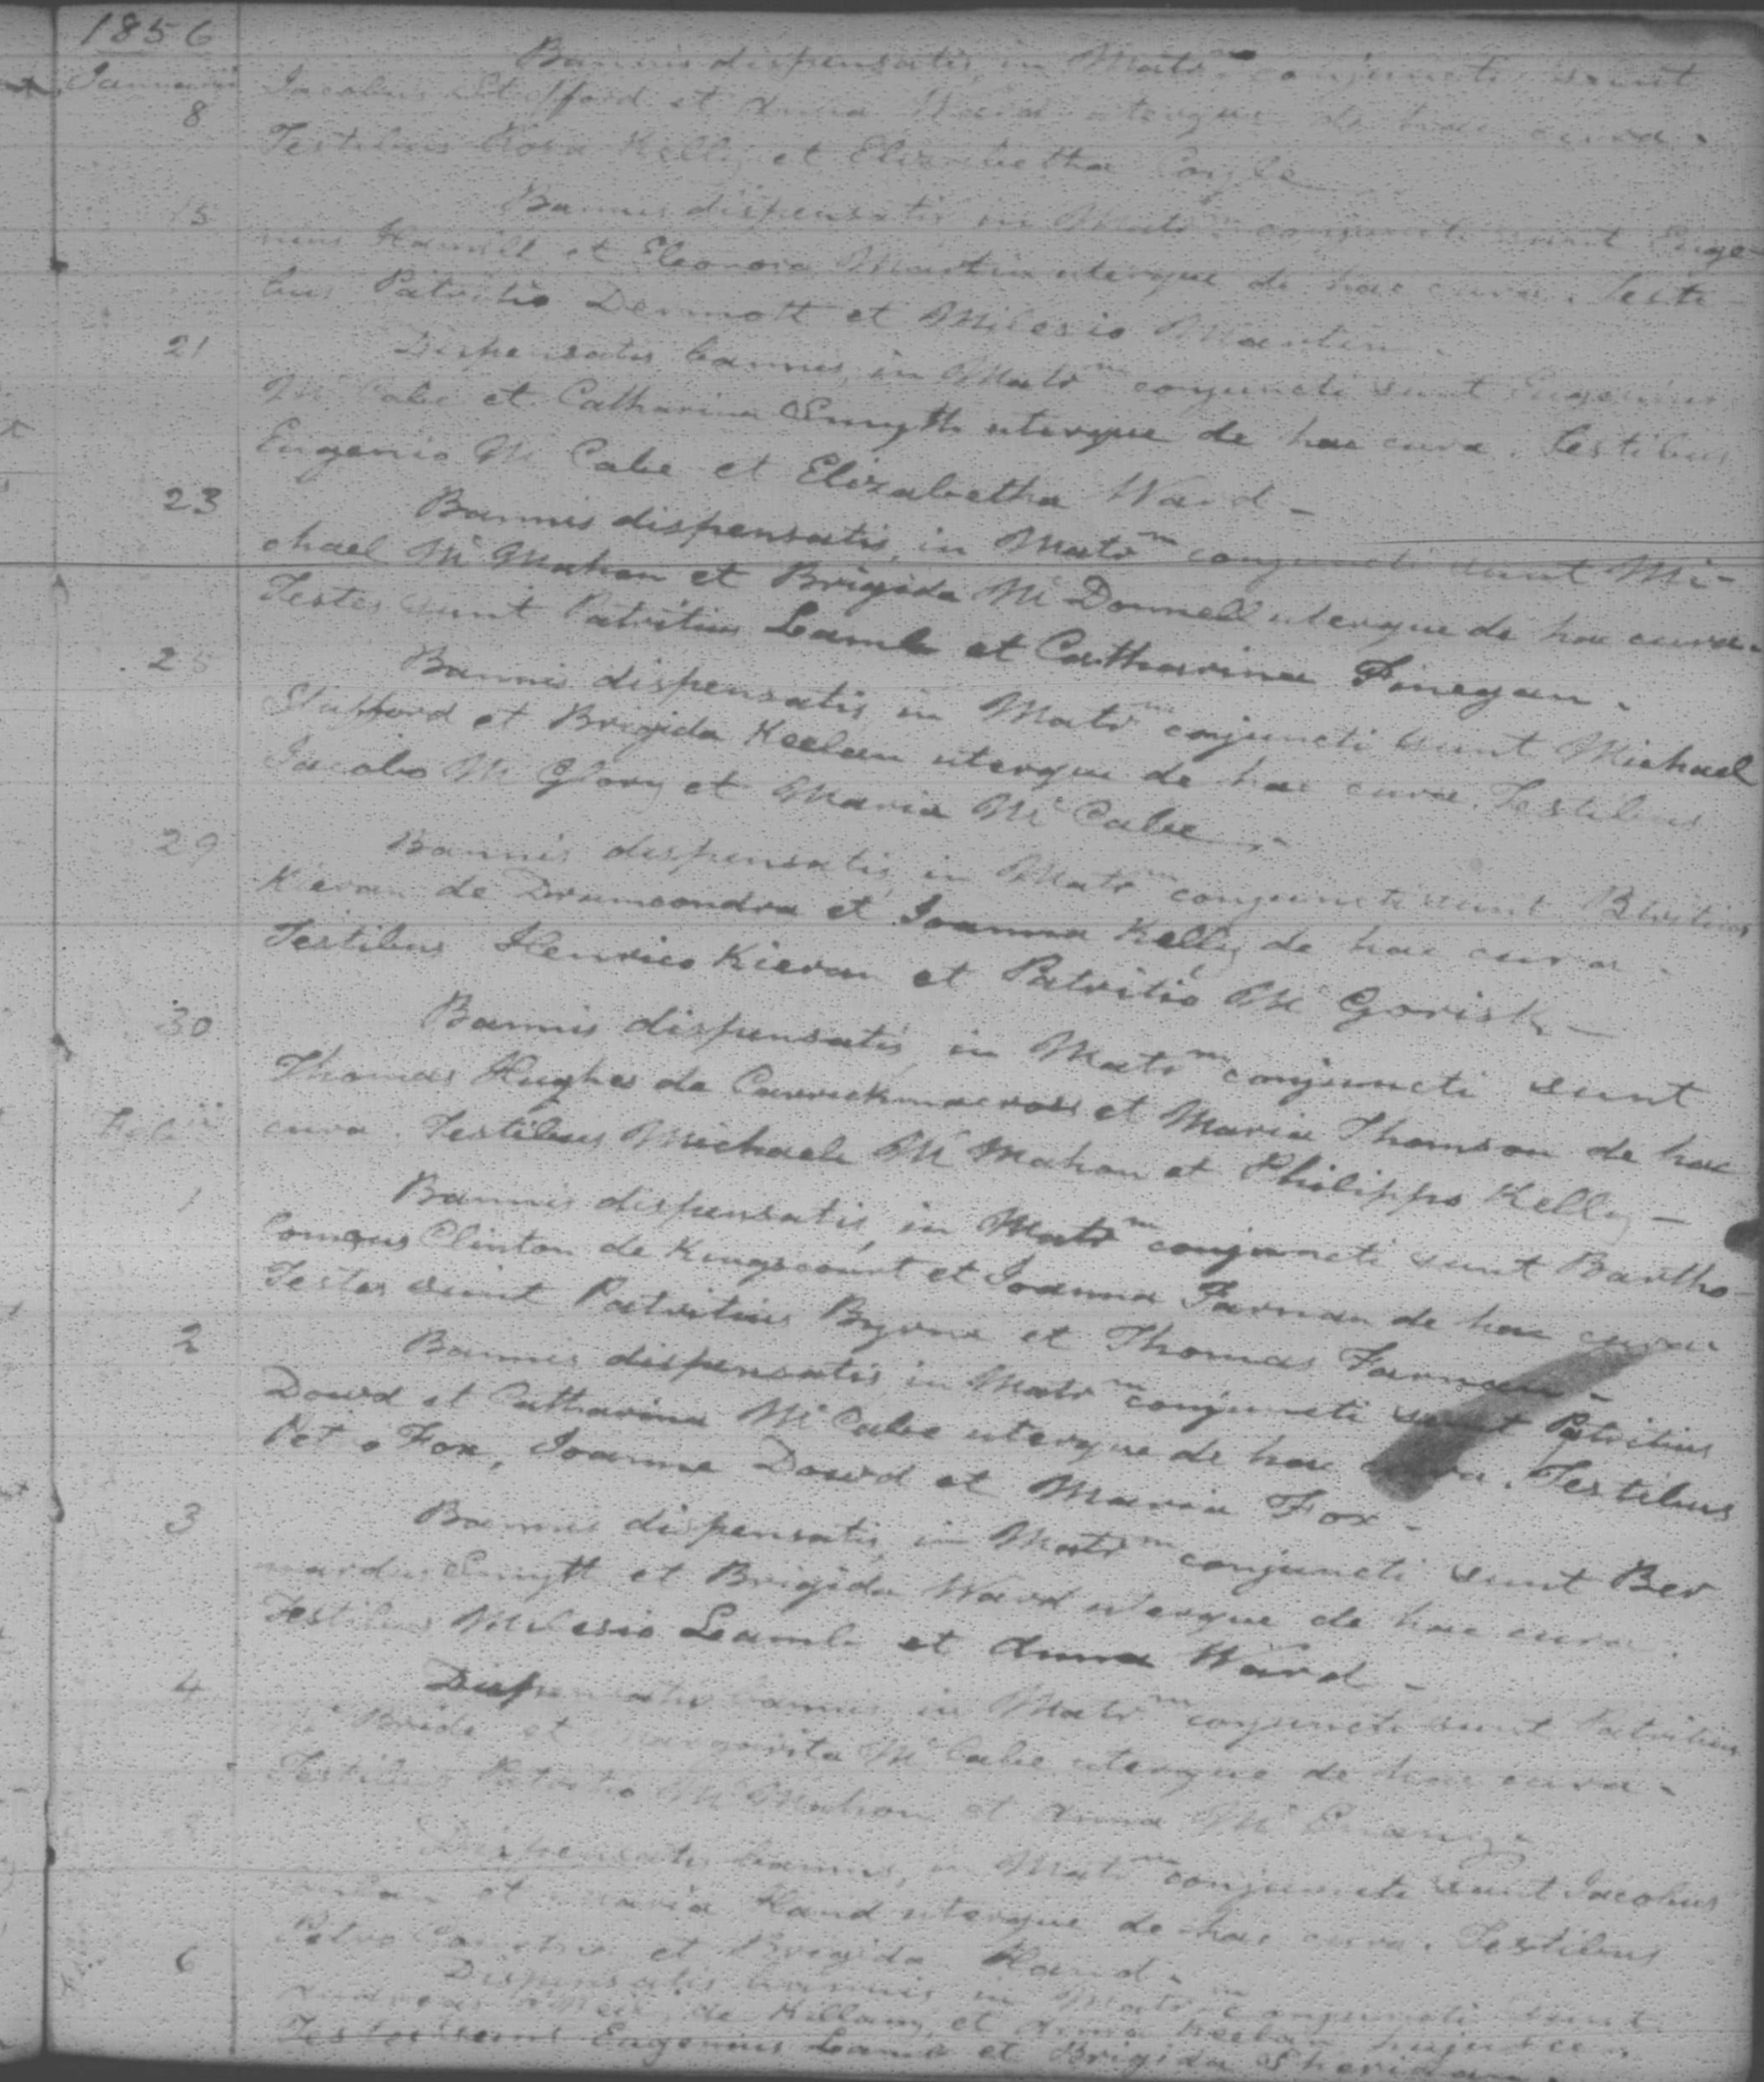 1856
Januarii
Bannis dispensatis, in Matr^m conjuncti sunt
8 Jacobus Stafford et Anna Ward uterque de hac cura.
Testibus Rosa Kelly et Elizabetha Coyle
15 Bannis dispensatis in Matr^m conjuncti sunt Euge-
nius Hamill et Eleonora Martin uterque de hac cura. Testi-
bus Patritio Dermott et Milesio Martin.
21 Dispensatis bannis, in Matr^m conjuncti sunt Eugenius
Mc Cabe et Catharina Smyth uterque de hac cura. Testibus
Eugenio Mc Cabe et Elizabetha Ward -
23 Bannis dispensatis, in Matr^m conjuncti sunt Mi-
chael Mc Mahon et Brigida Mc Donnell uterque de hac cura.
Testes sunt Patritius Lamb et Catharina Finegan.
25 Bannis dispensatis in Matr^m conjuncti sunt Michael
Stafford et Brigida Keelan uterque de hac cura. Testibus
Jacobo Mc Glory et Maria Mc Cabe.-
29 Bannis dispensatis, in Matr^m conjuncti sunt
Kieran de Drumcondra et Joanna Kelly de hac cura.
Testibus Henrico Kieran et Patritio Mc Gorisk -
30 Bannis dispensatis, in Matr^m conjuncti sunt
Thomas Hughes de Carrickmacross et Maria Thomson de hac
cura. Testibus Michaele Mc Mahon et Philippo Kelly -
Feb^ii
1 Bannis dispensatis, in Matr^m conjuncti sunt Bartho-
lomeus Clinton de Kingscourt et Joanna Farnan de hac cura
Testes sunt Patritius Byrne et Thomas Farnan -
2 Bannis dispensatis, in Matr^m conjuncti sunt Patritius
Dowd et Catharina Mc Cabe uterque de hac cura. Testibus
Petro Fox, Joanne Dowd et Maria Fox -
3 Bannis dispensatis, in Matr^m conjuncti sunt Ber
nardus Smyth et Brigida Ward uterque de hac cura.
Testibus Milesio Lamb et Anna Ward -
4 Dispensatis bannis, in Matr^m conjuncti sunt Patritius
Mc Bride et Margarita Mc Cabe uterque de hac cura -
Testibus Patritio Mc Mahon et Anna Mc
Dispensatis bannis, in Matr^m conjuncti sunt Jacobus
et Maria Hand uterque de hac cura. Testibus
Petro et Brigida Hand -
6 Dispensatis bannis in Matr^m conjuncti sunt
de et Anna Keelan
Testes sunt Eugenius Lamb et Brigida Sheridan.